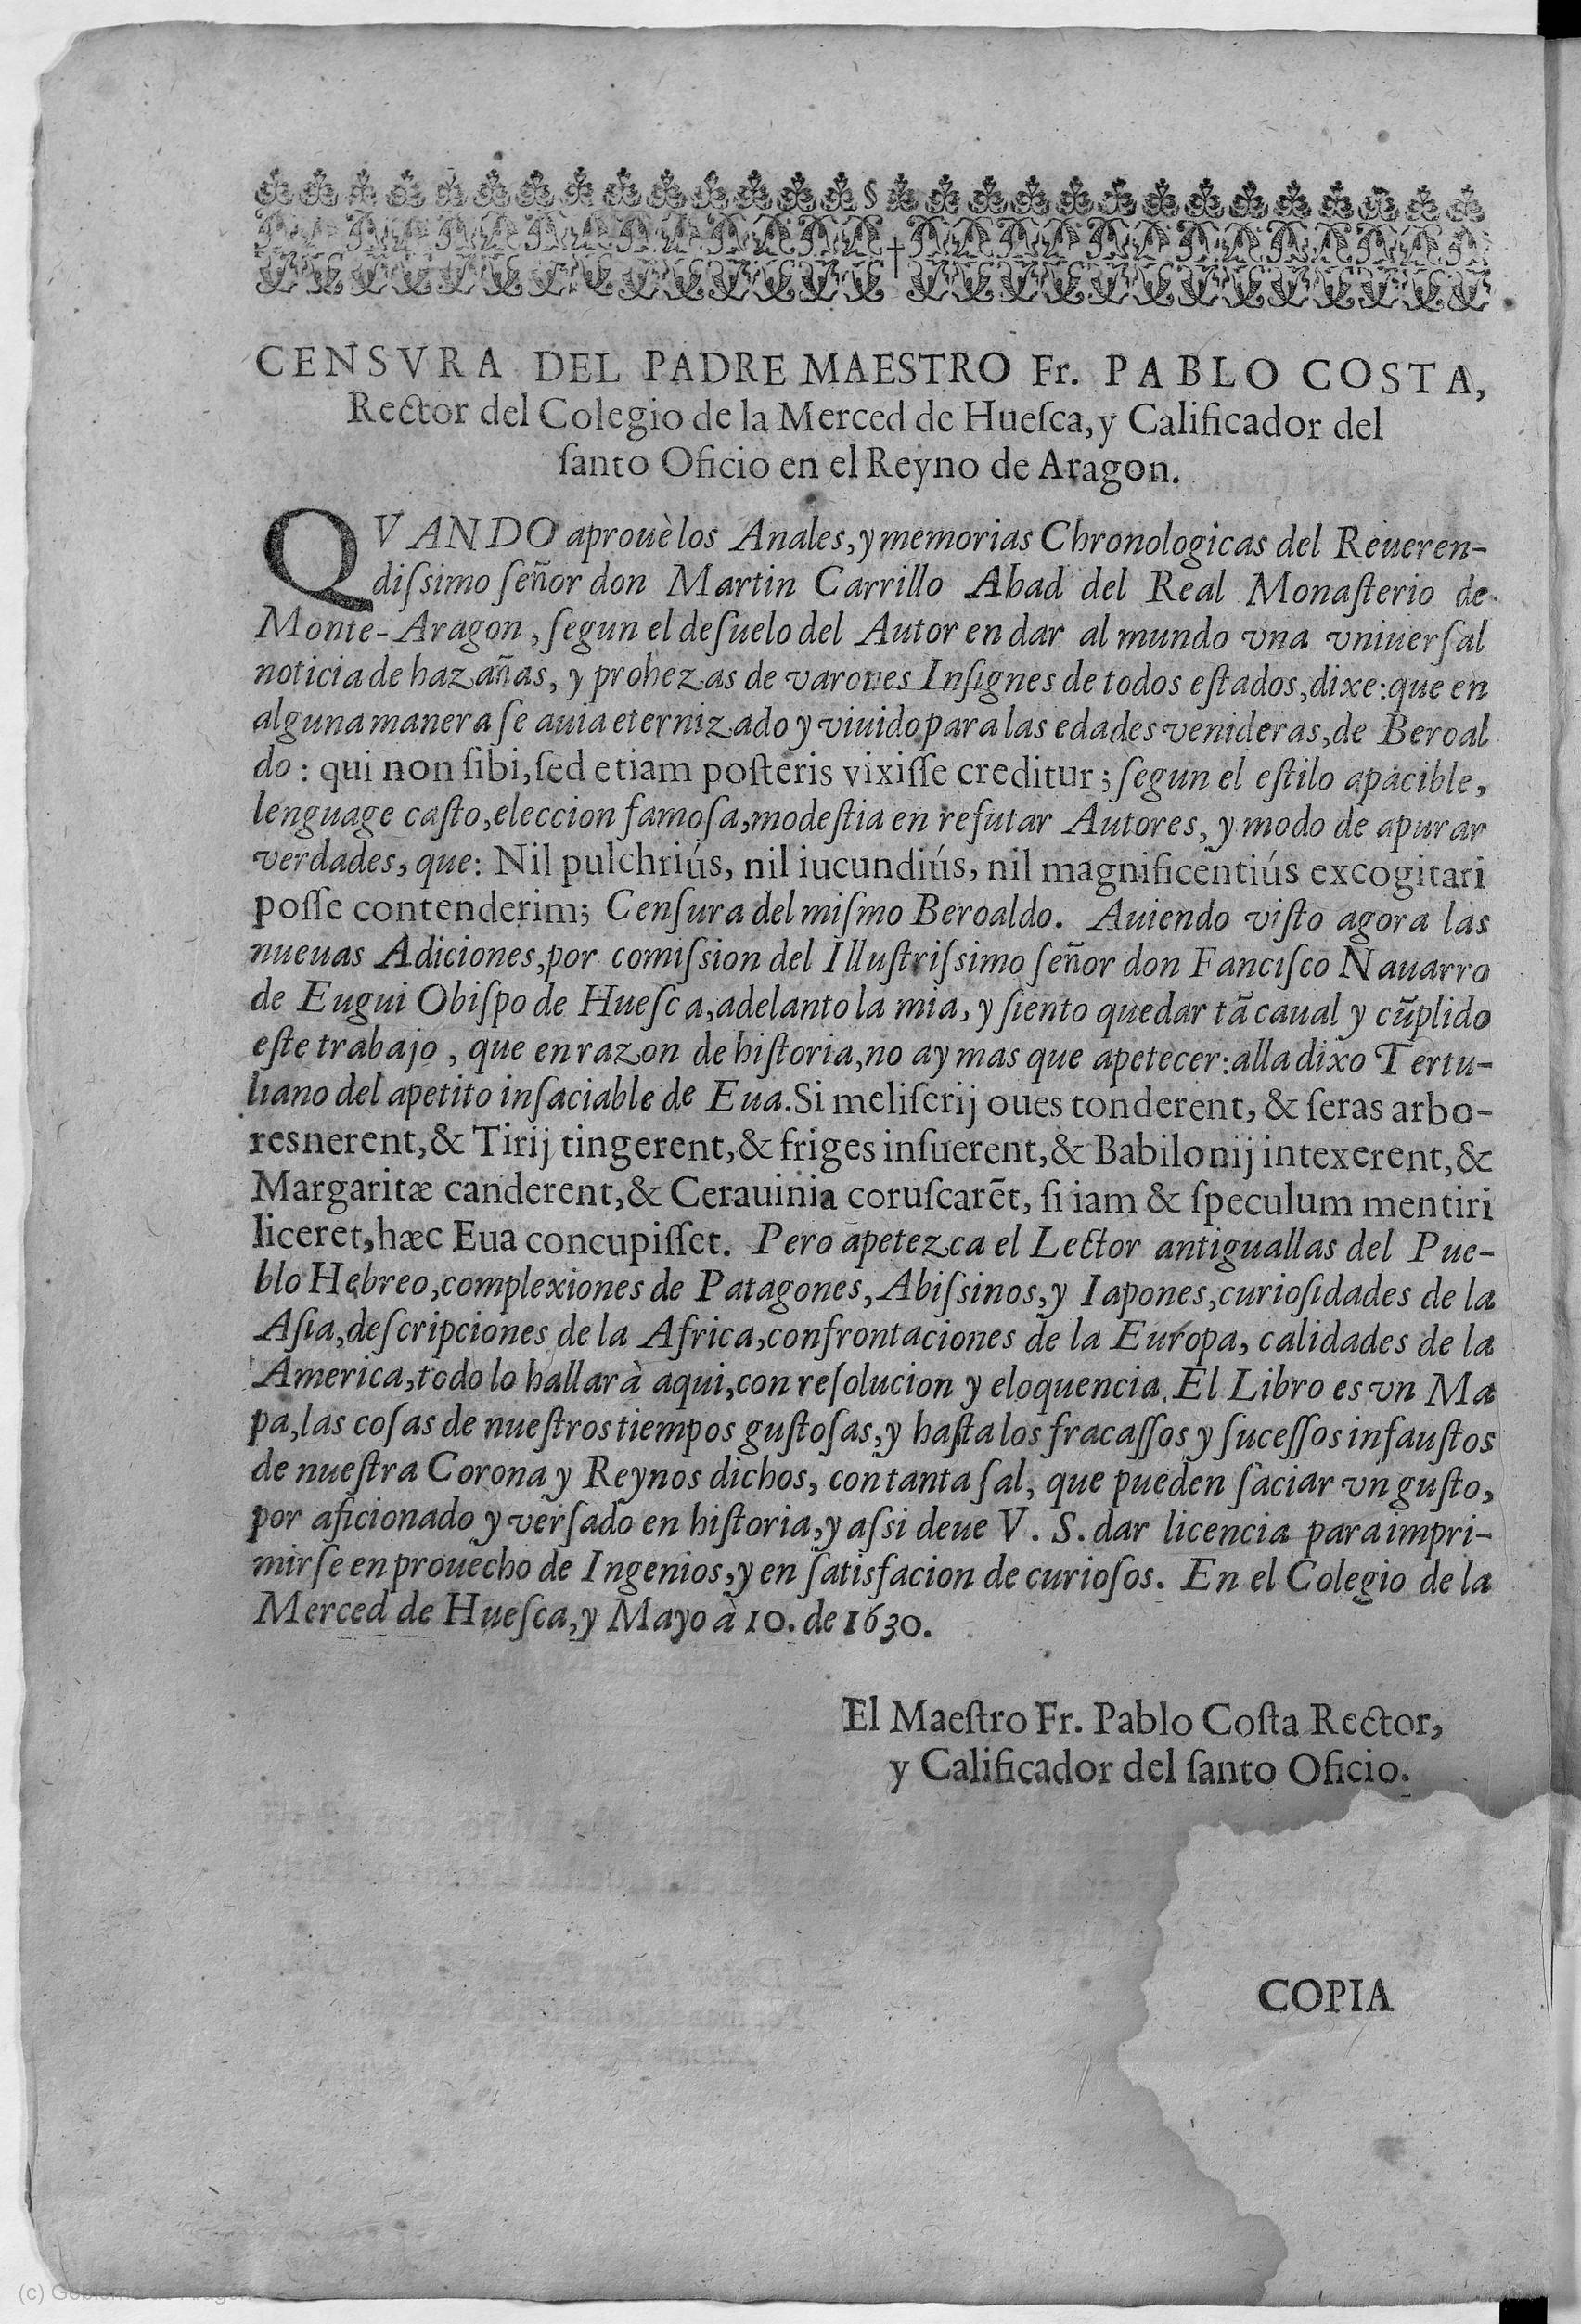 CENSVRA DEL PADRE MAESTRO Fr. PABLO COSTA,
Rector del Colegio de la Merced de Hueſca, y Calificador del
ſanto Oficio en el Reyno de Aragon.
QVANDO aprouè los Anales, y memorias Chronologicas del Reueren-
diſsimo ſeñor don Martin Carrillo Abad del Real Monaſterio de
Monte-Aragon, ſegun el deſuelo del Autor en dar al mundo vna vniuerſal
noticia de hazañas, y prohezas de varones Inſignes de todos eſtados, dixe: que en
alguna manera ſe auia eternizado y viuido para las edades venideras, de Beroal
do: qui non ſibi, ſed etiam poſteris vixiſſe creditur; ſegun el eſtilo apacible,
lenguage caſto, eleccion famoſa, modeſtia en refutar Autores, y modo de apurar
verdades, que: Nil pulchriús, nil iucundiús, nil magnificentiús excogitari
poſſe contenderim; Cenſura del miſmo Beroaldo. Auiendo viſto agora las
nueuas Adiciones, por comiſsion del Illuſtriſsimo ſeñor don Fanciſco Nauarro
de Eugui Obiſpo de Hueſca, adelanto la mia, y ſiento quedar tã caual y cũplido
eſte trabajo, que en razon de hiſtoria, no ay mas que apetecer: alla dixo Tertu-
liano del apetito inſaciable de Eua. Si meliſerij oues tonderent, & ſeras arbo-
resnerent, & Tirij tingerent, & friges inſuerent, & Babilonij intexerent, &
Margaritæ canderent, & Cerauinia coruſcarẽt, ſi iam & ſpeculum mentiri
liceret, hæc Eua concupiſſet. Pero apetezca el Lector antiguallas del Pue-
blo Hebreo, complexiones de Patagones, Abiſsinos, y Iapones, curioſidades de la
Aſia, deſcripciones de la Africa, confrontaciones de la Europa, calidades de la
America, todo lo hallarà aqui, con reſolucion y eloquencia. El Libro es vn Ma
pa, las coſas de nueſtros tiempos guſtoſas, y haſta los fracaſſos y ſuceſſos infauſtos
de nueſtra Corona y Reynos dichos, con tanta ſal, que pueden ſaciar vn guſto,
por aficionado y verſado en hiſtoria, y aſsi deue V. S. dar licencia para impri-
mirſe en prouecho de Ingenios, y en ſatisfacion de curioſos. En el Colegio de la
Merced de Hueſca, y Mayo à 10. de 1630.
El Maeſtro Fr. Pablo Coſta Rector,
y Calificador del ſanto Oficio.
COPIA